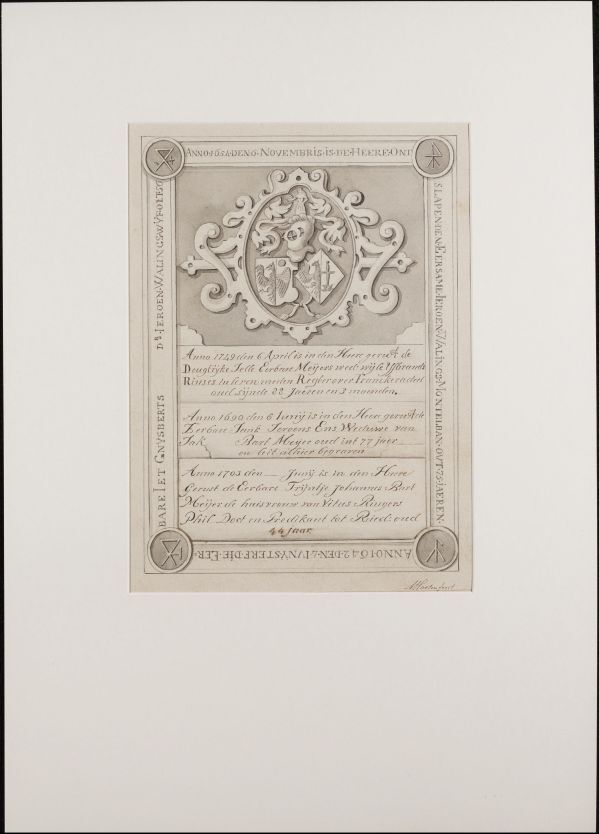 ANNO·1651·DEN·6·NOVEMBRIS·IS·DE·HEERE·ONT
SLAPEN·DEN·EERSAME·IEROEN·WALINGS·MONTELBAN·OVT·75·IAEREN·
ANNO·1642·DEN·2·IVNY·STERF·DIE·EER-
BARE IET GNYSBERTS
IEROEN·WALINGS·WYF·OLT·60
Anno 1749 den 6 April is in den Heere gerust de
Deugtrijke Jelle Eerbare Meijers wed: wijle IJsbrandt
Rinses in leven van den Regter over Franekeradeel
oud sijnde 88 Jaeren en 3 maenden.
Anno 1690 den 6 Junij is in den Heere gerust de
Eerbare Jank Jeroens Ens Weduwe van
Jak Bart Meyer oud int 77 jaer
en leit alhier begraven
Anno 1703 den Junij is in den Heere
Gerust de Eerbare Trijntje Johannes Bart
Meijer de huisvrouw van Vitus Ringers
Phil. Doct en Predikant tot Ried: oud
44 jaar